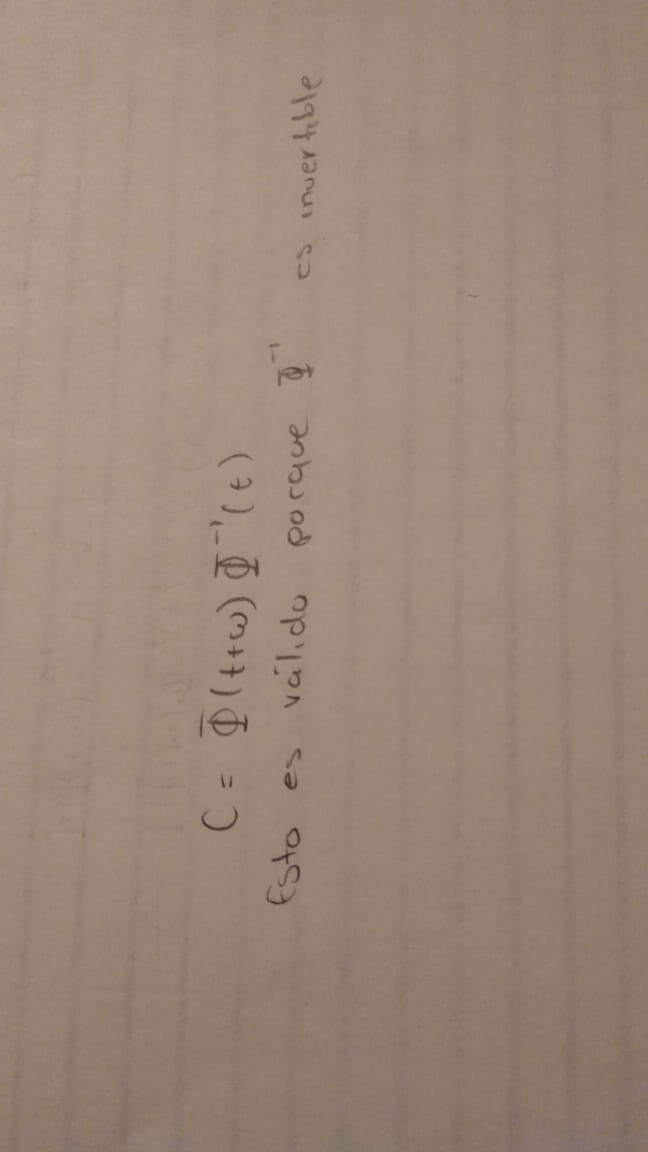 C = Φ(t+ω) Φ⁻¹(t)
Esto es válido porque Φ⁻¹ es invertible